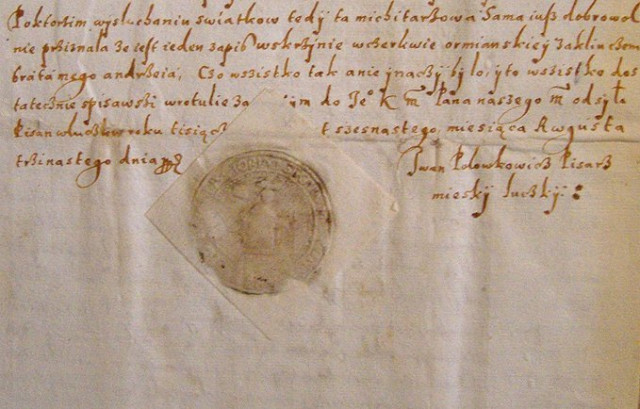 Poktorim wysluchaniu swiatkow tedy ta michitarowa Sama iusz dobrowol
nie prziznala ze iest ieden zapis wskrzynie wczerkwie ormianskiey zakluczem
brata mego andrzeia, Czo wszistko tak a nie ynaczy bylo, yto wszistko dos
tatecznie spisawszi wrotulie za do Je° K m Pana naszego m odsylo
Pisan wluczku roku tisiącz t szesnastego, miesiąca Awgusta
trzinastego dnia
Iwan Polowkowicz Pisarz
miesky luczky